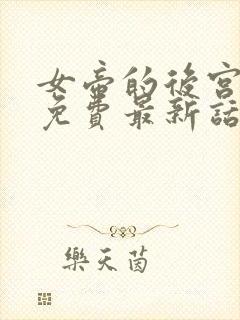 女帝的後宮
免費最新話
樂天茵